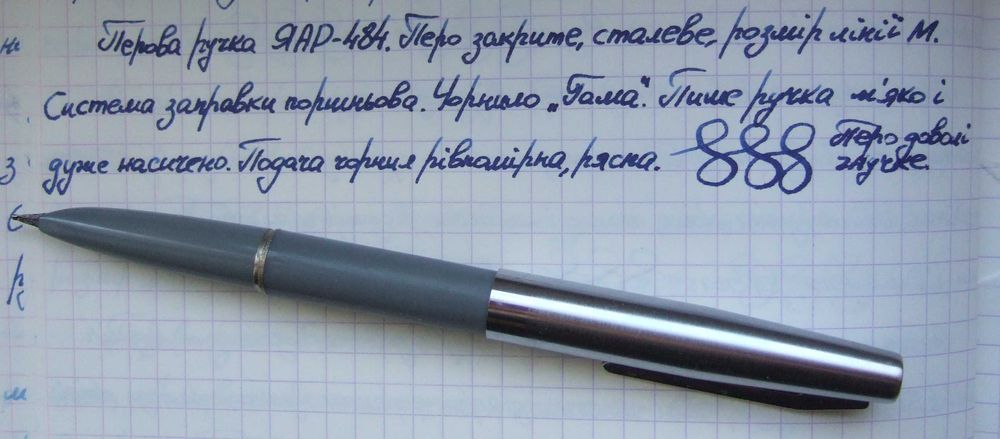 Перова ручка ЯАР-484. Перо закрите, сталеве, розмір лінії М.
Система заправки поршньова. Чорнило „Гама". Пише ручка м'яко і
дуже насичено. Подача чорнил рівномірна, рясна.
Перо доволі
гнучке.
ни
З
Є
м